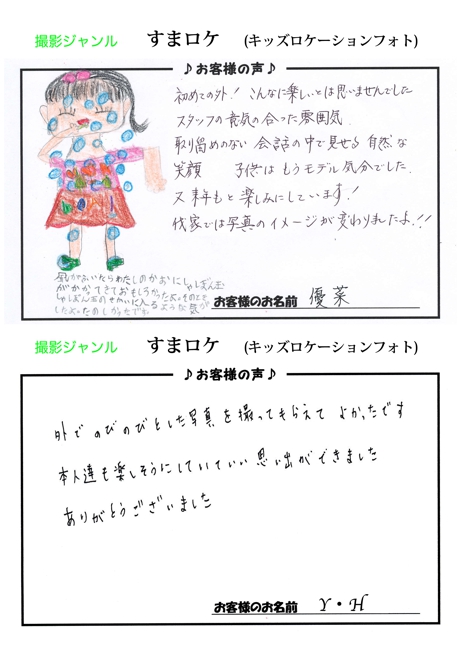 撮影ジャンル すまロケ (キッズロケーションフォト)
♪お客様の声♪
初めての外!こんなに楽しいとは思いませんでした
スタッフの意気の合った雰囲気
取り留めのない会話の中で見せる自然な
笑顔 子供はもうモデル気分でした。
又来年もと楽しみにしています!
我家では写真のイメージが変わりましたよ!!
風がふいたらわたしのかおにしゃぼん玉
がかかってきておもしろかったよ。そのまま
しゃぼん玉のせかいに入るような気が
したよ。たのしかったです。
お客様のお名前 優菜
撮影ジャンル すまロケ (キッズロケーションフォト)
♪お客様の声♪
外でのびのびとした写真を撮ってもらえてよかったです
本人達も楽しそうにしていていい思い出ができました
ありがとうございました
お客様のお名前 Y・H